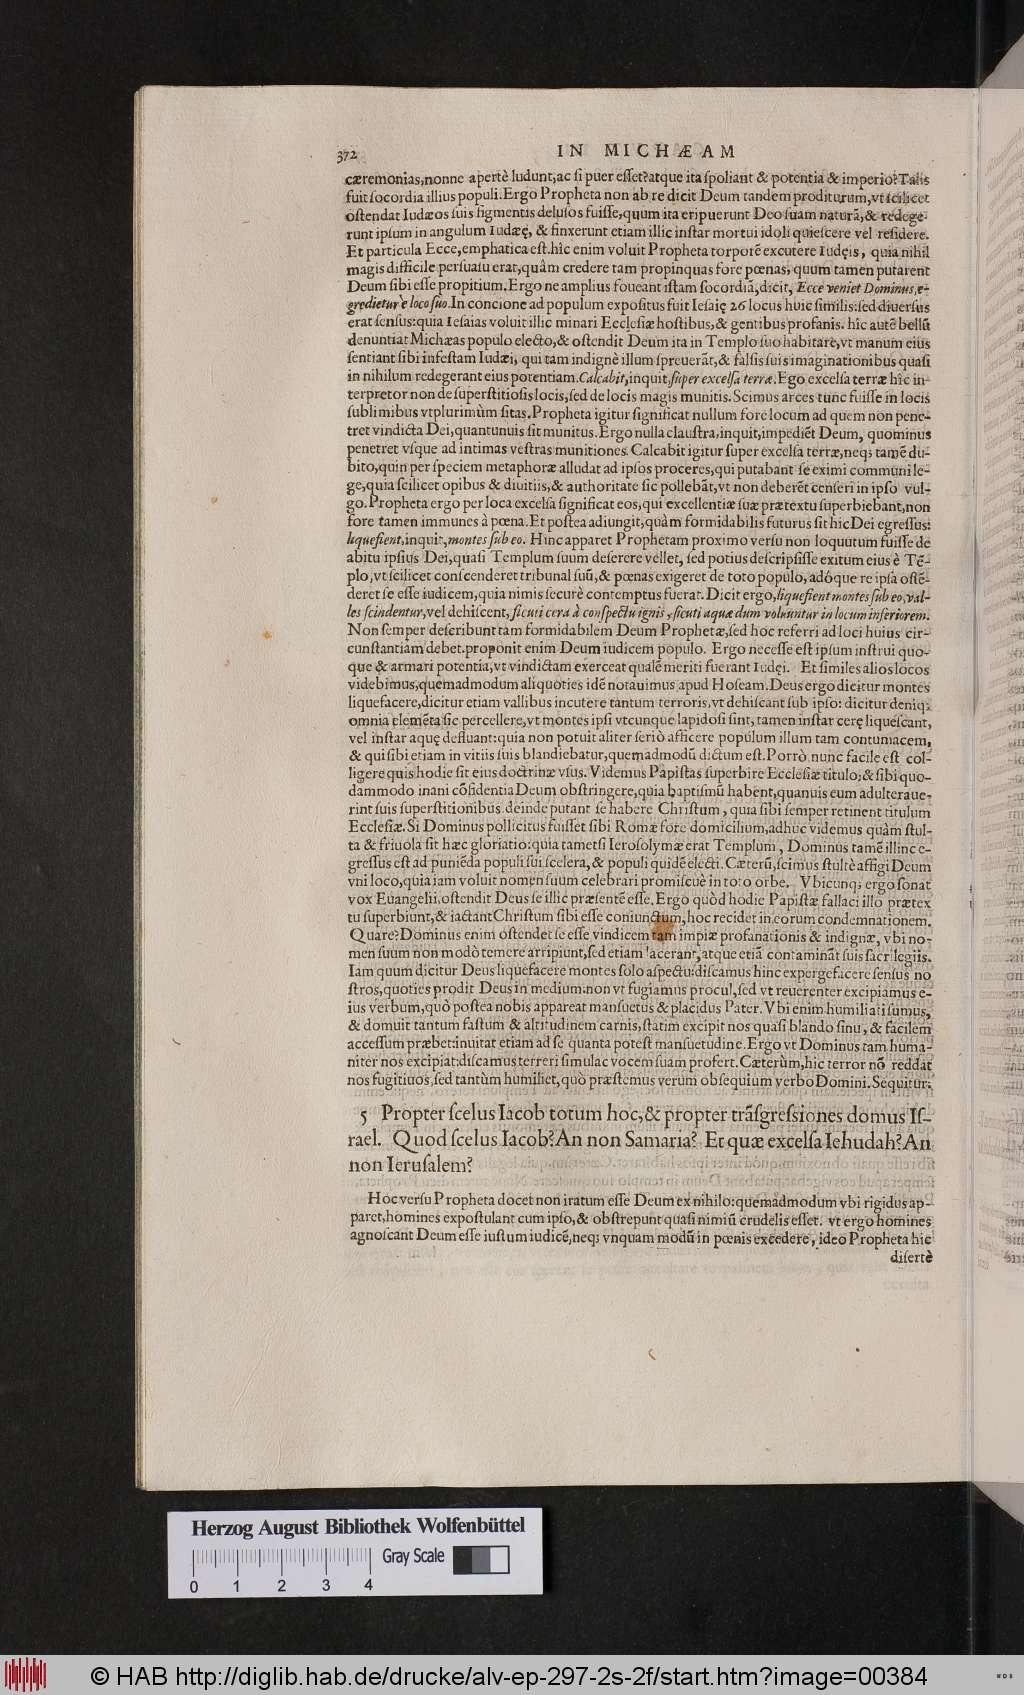 372
IN MICHÆAM
cæremonias,nonne apertè ludunt,ac ſi puer eſſet?atque ita ſpoliant & potentia & imperio?Talis
fuit ſocordia illius populi.Ergo Propheta non ab re dicit Deum tandem proditurum,vt ſcilicet
oſtendat Iudæos ſuis figmentis deluſos fuiſſe,quum ita eripuerunt Deo ſuam naturã,& redege-
runt ipſum in angulum Iudæę, & finxerunt etiam illic inſtar mortui idoli quieſcere vel reſidere.
Et particula Ecce,emphatica eſt.hîc enim voluit Propheta torporẽ excutere Iudęis, quia nihil
magis difficile perſuaſu erat,quàm credere tam propinquas fore pœnas, quum tamen putarent
Deum ſibi eſſe propitium.Ergo ne amplius foueant iſtam ſocordiã,dicit, Ecce veniet Dominus,e-
gredietur è loco ſuo.In concione ad populum expoſitus fuit Ieſaię 26 locus huic ſimilis:ſed diuerſus
erat ſenſus:quia Ieſaias voluit illic minari Eccleſiæ hoſtibus,& gentibus profanis. hîc autẽ bellũ
denuntiat Michæas populo electo,& oſtendit Deum ita in Templo ſuo habitare,vt manum eius
ſentiant ſibi infeſtam Iudæi, qui tam indignè illum ſpreuerãt,& falſis ſuis imaginationibus quaſi
in nihilum redegerant eius potentiam.Calcabit,inquit,ſuper excelſa terræ.Ego excelſa terræ hîc in-
terpretor non de ſuperſtitioſis locis,ſed de locis magis munitis.Scimus arces tunc fuiſſe in locis
ſublimibus vtplurimùm ſitas.Propheta igitur ſignificat nullum fore locum ad quem non pene-
tret vindicta Dei,quantunuis ſit munitus.Ergo nulla clauſtra,inquit,impediẽt Deum, quominus
penetret vſque ad intimas veſtras munitiones.Calcabit igitur ſuper excelſa terræ,neq; tamẽ du-
bito,quin per ſpeciem metaphoræ alludat ad ipſos proceres,qui putabant ſe eximi communi le-
ge,quia ſcilicet opibus & diuitiis,& authoritate ſic pollebãt,vt non deberẽt cenſeri in ipſo vul-
go.Propheta ergo per loca excelſa ſignificat eos,qui excellentiæ ſuæ prætextu ſuperbiebant,non
fore tamen immunes à pœna.Et poſtea adiungit,quàm formidabilis futurus ſit hic Dei egreſſus:
liquefient,inquit,montes ſub eo. Hinc apparet Prophetam proximo verſu non loquutum fuiſſe de
abitu ipſius Dei,quaſi Templum ſuum deſerere vellet, ſed potius deſcripſiſſe exitum eius è Tẽ-
plo,vt ſcilicet conſcenderet tribunal ſuũ,& pœnas exigeret de toto populo, adóque re ipſa oſtẽ-
deret ſe eſſe iudicem,quia nimis ſecurè contemptus fuerat.Dicit ergo,liquefient montes ſub eo,val-
les ſcindentur,vel dehiſcent,ſicuti cera à conſpectu ignis,ſicuti aquæ dum voluuntur in locum inferiorem.
Non ſemper deſcribunt tam formidabilem Deum Prophetæ,ſed hoc referri ad loci huius cir-
cunſtantiam debet.proponit enim Deum iudicem populo. Ergo neceſſe eſt ipſum inſtrui quo-
que & armari potentia,vt vindictam exerceat qualẽ meriti fuerant Iudęi. Et ſimiles alios locos
videbimus,quemadmodum aliquoties idẽ notauimus apud Hoſeam.Deus ergo dicitur montes
liquefacere,dicitur etiam vallibus incutere tantum terroris,vt dehiſcant ſub ipſo: dicitur deniq;
omnia elemẽta ſic percellere,vt montes ipſi vtcunque lapidoſi ſint, tamen inſtar cerę liqueſcant,
vel inſtar aquę defluant:quia non potuit aliter ſeriò afficere populum illum tam contumacem,
& qui ſibi etiam in vitiis ſuis blandiebatur,quemadmodũ dictum eſt.Porrò nunc facile eſt col-
ligere quis hodie ſit eius doctrinæ vſus.Videmus Papiſtas ſuperbire Eccleſiæ titulo,& ſibi quo-
dammodo inani cõfidentia Deum obſtringere,quia baptiſmũ habent,quanuis eum adulteraue-
rint ſuis ſuperſtitionibus.deinde putant ſe habere Chriſtum, quia ſibi ſemper retinent titulum
Eccleſiæ.Si Dominus pollicitus fuiſſet ſibi Romæ fore domicilium,adhuc videmus quàm ſtul-
ta & friuola ſit hæc gloriatio:quia tametſi Ieroſolymæ erat Templum, Dominus tamẽ illinc e-
greſſus eſt ad puniẽda populi ſui ſcelera,& populi quidẽ electi. Cæterũ,ſcimus ſtultè affigi Deum
vni loco,quia iam voluit nomen ſuum celebrari promiſcuè in toto orbe. Vbicunq; ergo ſonat
vox Euangelii,oſtendit Deus ſe illic præſentẽ eſſe.Ergo quòd hodie Papiſtæ fallaci illo prætex
tu ſuperbiunt,& iactant Chriſtum ſibi eſſe coniunctum,hoc recidet in eorum condemnationem.
Quare?Dominus enim oſtendet ſe eſſe vindicem tam impiæ profanationis & indignæ, vbi no-
men ſuum non modò temere arripiunt,ſed etiam lacerant,atque etiã contaminãt ſuis ſacrilegiis.
Iam quum dicitur Deus liquefacere montes ſolo aſpectu:diſcamus hinc expergefacere ſenſus no
ſtros,quoties prodit Deus in medium:non vt fugiamus procul,ſed vt reuerenter excipiamus e-
ius verbum,quò poſtea nobis appareat manſuetus & placidus Pater.Vbi enim humiliati ſumus,
& domuit tantum faſtum & altitudinem carnis,ſtatim excipit nos quaſi blando ſinu, & facilem
acceſſum præbet:inuitat etiam ad ſe quanta poteſt manſuetudine.Ergo vt Dominus tam huma-
niter nos excipiat:diſcamus terreri ſimulac vocem ſuam profert.Cæterùm,hic terror nõ reddat
nos fugitiuos,ſed tantùm humiliet,quò præſtemus verum obſequium verbo Domini.Sequitur:
5 Propter ſcelus Iacob totum hoc,& propter trãſgreſsiones domus Iſ-
rael. Quod ſcelus Iacob?An non Samaria? Et quæ excelſa Iehudah?An
non Ieruſalem?
Hoc verſu Propheta docet non iratum eſſe Deum ex nihilo:quemadmodum vbi rigidus ap-
paret,homines expoſtulant cum ipſo,& obſtrepunt quaſi nimiũ crudelis eſſet. vt ergo homines
agnoſcant Deum eſſe iuſtum iudicẽ,neq; vnquam modũ in pœnis excedere, ideo Propheta hic
diſertè
Herzog August Bibliothek Wolfenbüttel
Gray Scale
0 1 2 3 4
© HAB http://diglib.hab.de/drucke/alv-ep-297-2s-2f/start.htm?image=00384